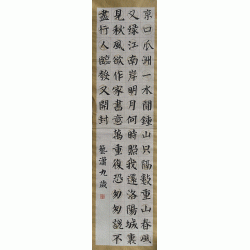 京口瓜洲一水間鍾山只隔數重山春風
又綠江南岸明月何時照我還洛陽城裏
見秋風欲作家書意萬重復恐匆匆說不
盡行人臨發又開封
藝瀟九歲